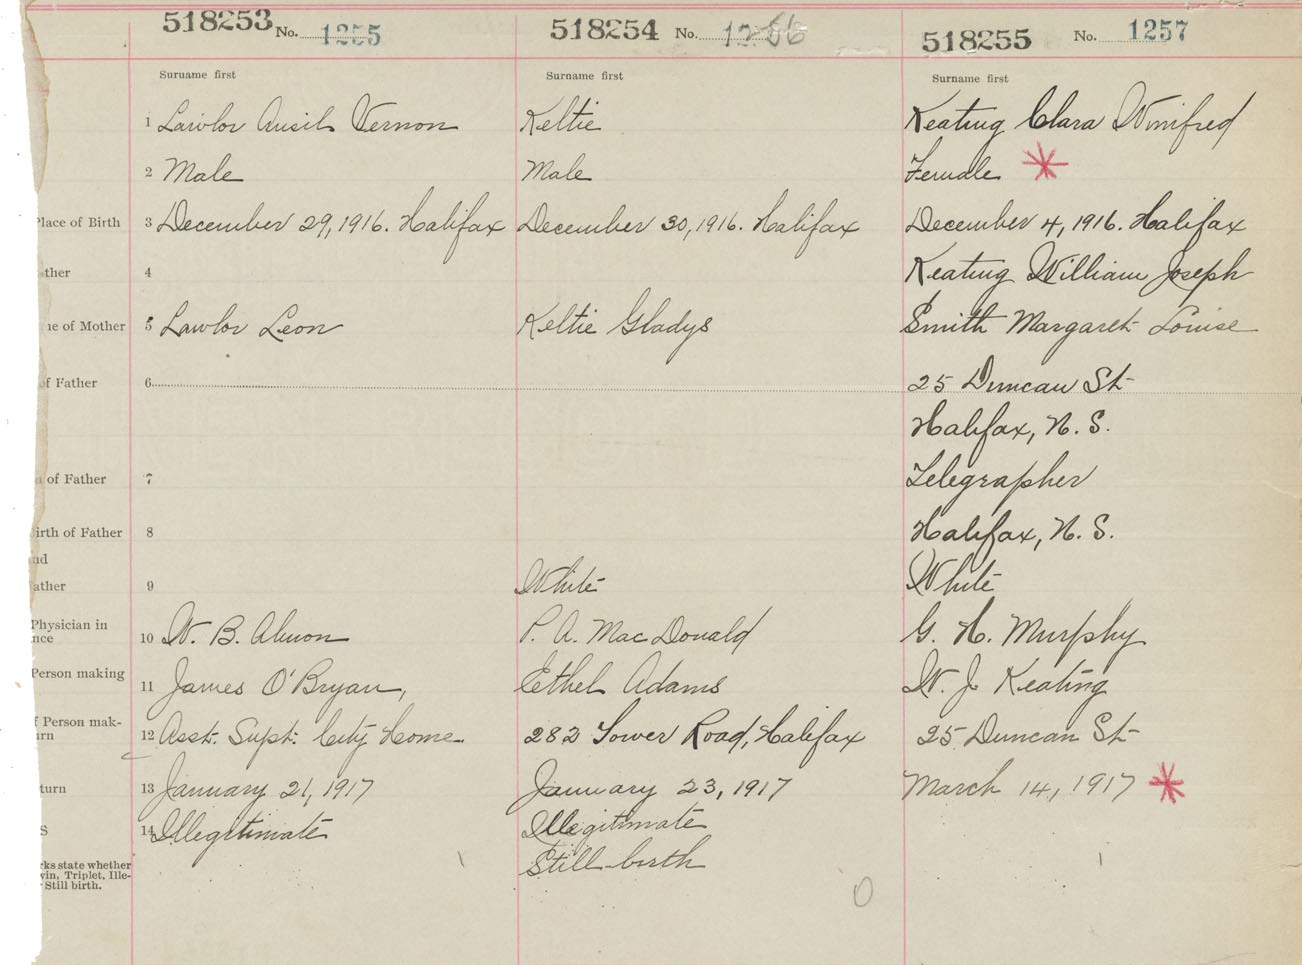 518253 No. 1255
518254 No. 1256
518255 No. 1257
Surname first
Surname first
Surname first
1 Lawlor Ansil Vernon
Keltie
Keating Clara Winifred
2 Male
Male
Female
Place of Birth 3 December 29, 1916. Halifax
December 30, 1916. Halifax
December 4, 1916. Halifax
ther 4
Keating William Joseph
ne of Mother 5 Lawlor Leon
Keltie Gladys
Smith Margaret Louise
of Father 6
25 Duncan St
Halifax, N. S.
of Father 7
Telegrapher
irth of Father 8
Halifax, N. S.
nd
ather 9
White
White
Physician in
nce 10 W. B. Almon
P. A. MacDonald
G. H. Murphy
Person making
11 James O'Bryan,
Ethel Adams
W. J. Keating
f Person mak-
urn 12 Asst. Supt. City Home
282 Tower Road, Halifax
25 Duncan St
turn 13 January 21, 1917
January 23, 1917
March 14, 1917
S 14 Illegitimate
Illegitimate
Still-birth
rks state whether
win, Triplet, Ille-
Still birth.